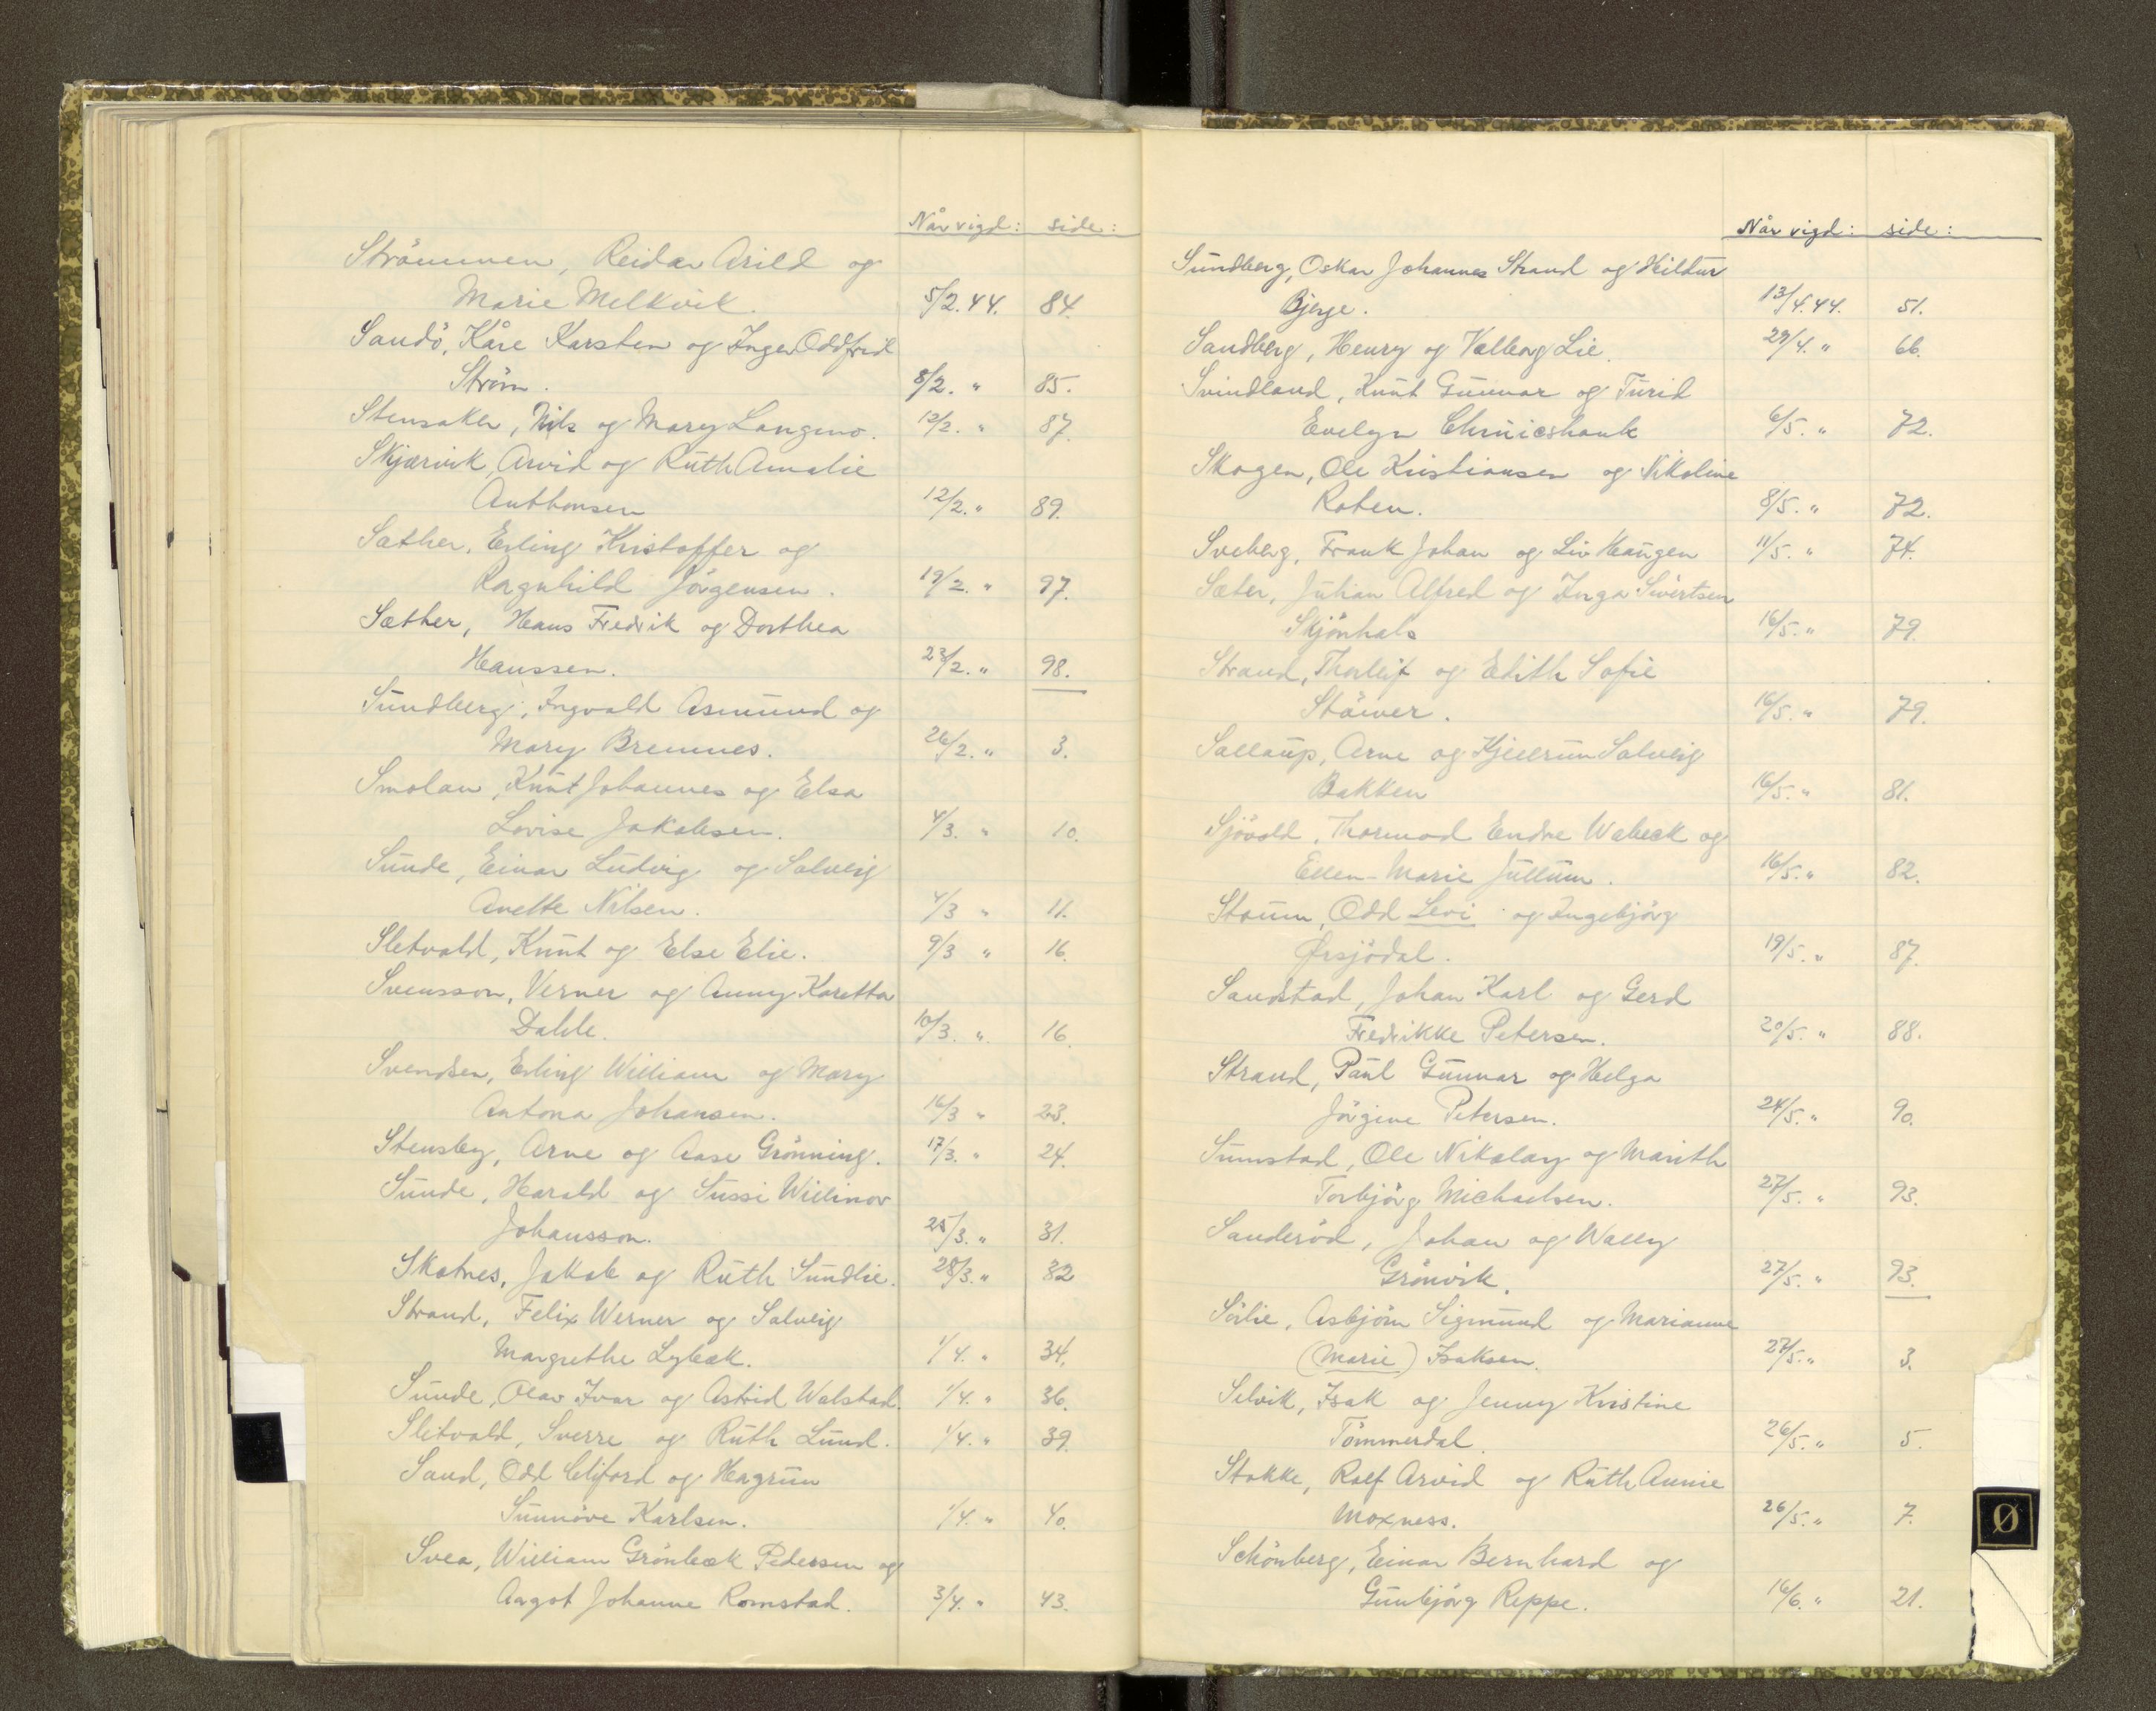 Når vigd: side:
Strömmen, Reidar Arild og
Marie Melkvik. 5/2.44. 84.
Sandö, Kåre Karsten og Inger Oddfrid
Ström. 8/2. " 85.
Stensaker, Nils og Mary Langmo. 12/2. " 87.
Skjærvik, Arvid og Ruth Amalie
Anthonsen 12/2. " 89.
Sæther, Erling Kristoffer og
Ragnhild Jörgensen. 19/2. " 97.
Sæther, Hans Fredrik og Dorthea
Hanssen. 23/2. " 98.
Sundberg, Ingvald Asmund og
Mary Bremnes. 26/2. " 3.
Smolan, Knut Johannes og Elsa
Lovise Jakobsen. 4/3. " 10.
Sunde, Einar Ludvig og Solveig
Anette Nilsen. 4/3 " 11.
Sletvold, Knut og Else Elie. 9/3 " 16.
Svensson, Verner og Anny Karetta
Dahle. 10/3. " 16.
Svendsen, Erling William og Mary
Antona Johansen. 16/3 " 23.
Stensby, Arne og Aase Grönning. 17/3. " 24.
Sunde, Harald og Sussi Willinor
Johansson. 25/3. " 31.
Skatnes, Jakob og Ruth Sundlie. 28/3. " 32
Strand, Felix Werner og Solveig
Margrethe Lybæk. 1/4. " 34.
Sunde, Olav Ivar og Astrid Walstad. 1/4. " 36.
Sletvold, Sverre og Ruth Lund. 1/4. " 39.
Sand, Odd Cliford og Hagrun
Sunnöve Karlsen. 1/4. " 40.
Svea, William Grönbæk Pedersen og
Aagot Johanne Romstad. 3/4. " 43.
Når vigd: side:
Sundberg, Oskar Johannes Strand og Hildur
Bjerge. 13/4.44. 51.
Sandberg, Henry og Valborg Lie. 29/4. " 66.
Svindland, Knut Gunnar og Turid
Evelyn Chruicshank 6/5. " 72.
Skogen, Ole Kristiansen og Nikoline
Roten. 8/5. " 72.
Sveberg, Frank Johan og Liv Haugen 11/5. " 74.
Sæter, Julian Alfred og Inga Sivertsen
Skjönhals 16/5. " 79.
Strand, Thorleif og Edith Sofie
Stöwer. 16/5. " 79.
Sollaup, Arne og Kjellrun Solveig
Bakken 16/5. " 81.
Sjövold, Thormod Endre Wabeck og
Ellen-Marie Jullum. 16/5. " 82.
Staum, Odd Levi og Ingebjörg
Ørsjödal. 19/5. " 87.
Sandstad, Johan Karl og Gerd
Fredrikke Petersen. 20/5. " 88.
Strand, Paul Gunnar og Helga
Jörgine Petersen. 24/5. " 90.
Sumstad, Ole Nikolay og Marith
Torbjörg Michaelsen. 27/5. " 93.
Sanderöd, Johan og Wally
Grönvik. 27/5. " 93.
Sörlie, Asbjörn Sigmund og Marianne
(Marie) Isaksen. 27/5. " 3.
Selvik, Isak og Jenny Kristine
Tömmerdal. 26/5. " 5.
Stokke, Rolf Arvid og Ruth Annie
Moxness. 26/5. " 7.
Schönberg, Einar Bernhard og
Gunbjörg Reppe. 16/6. " 21.
Ø